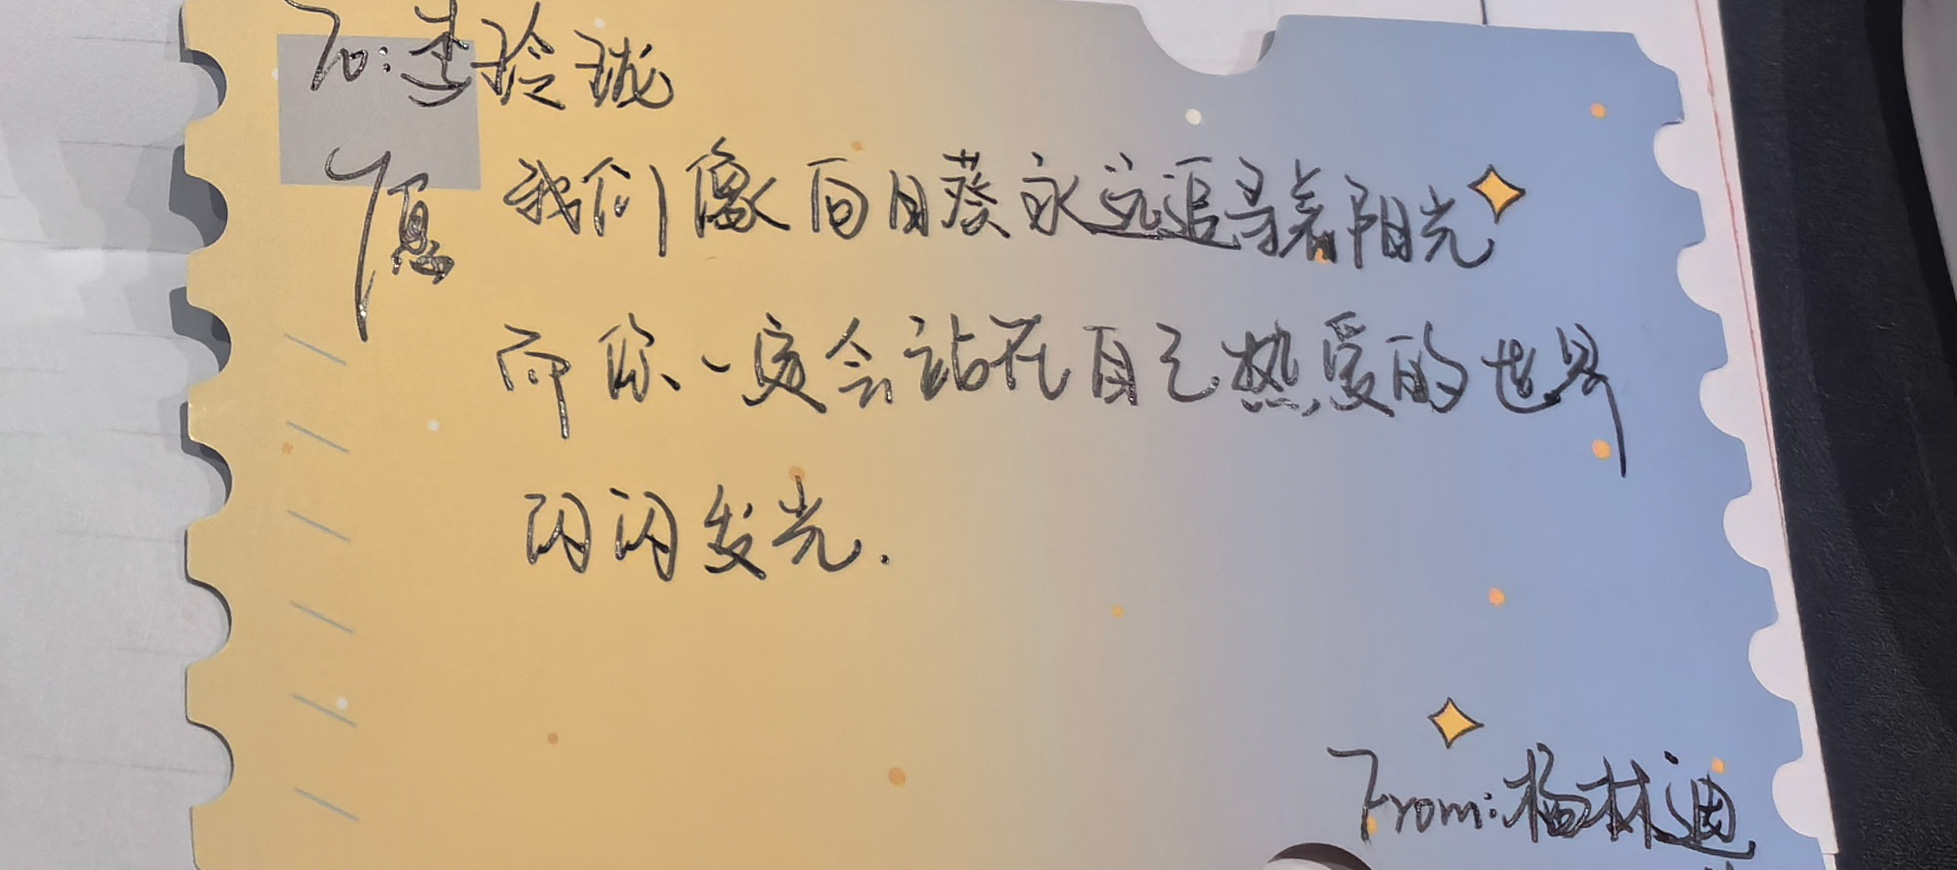 To:李玲珑
愿 我们像向日葵永远追寻着阳光
而你一定会站在自己热爱的世界
闪闪发光.
From:杨林迪